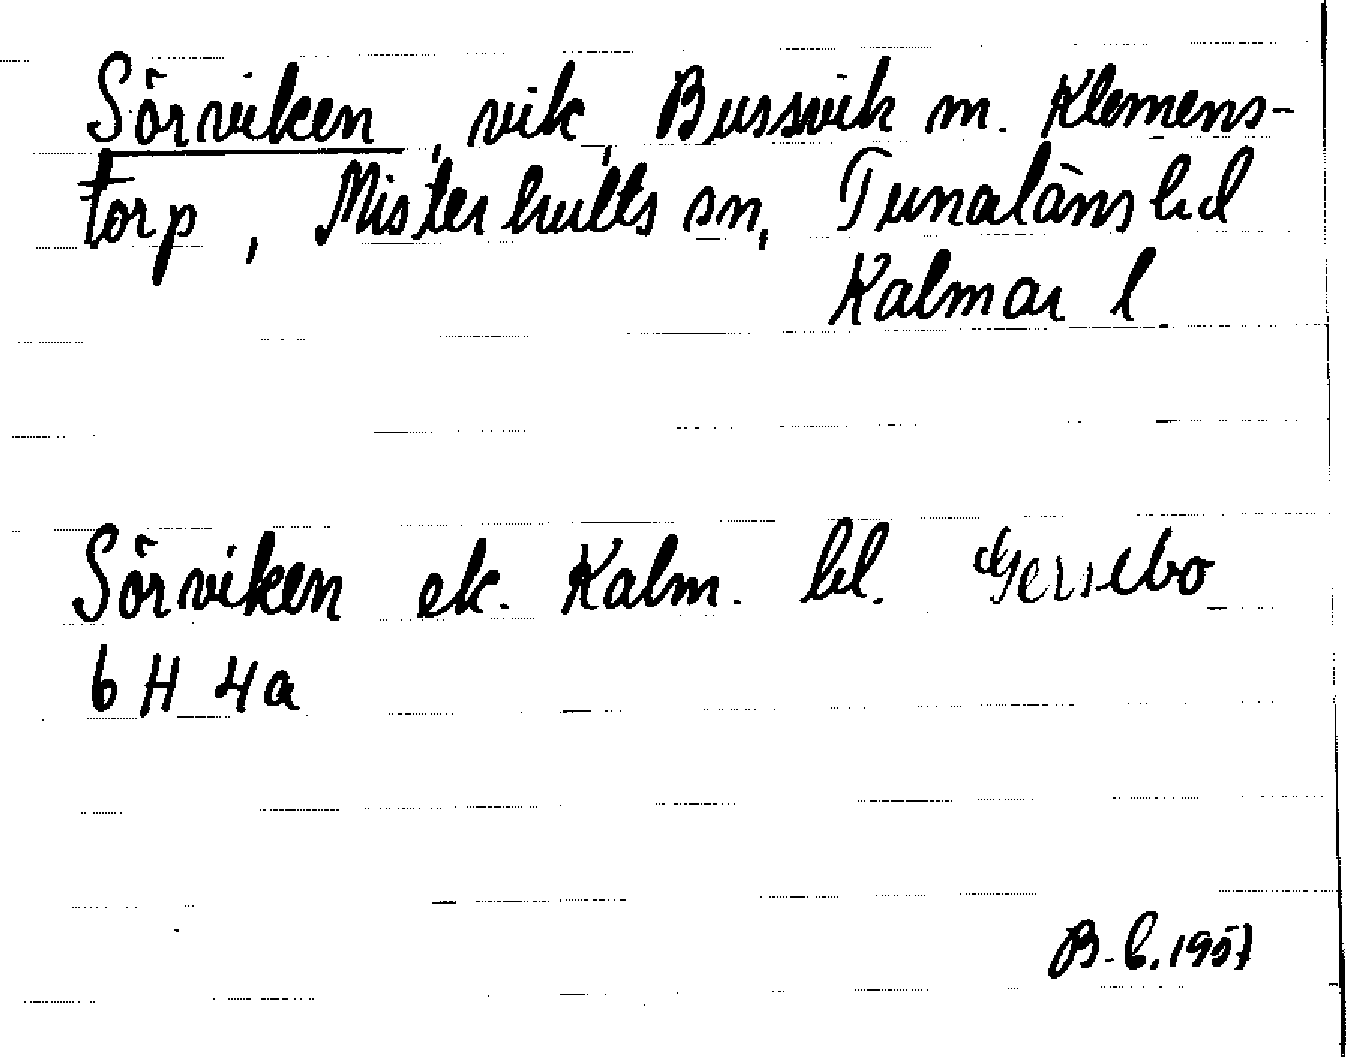 Sörviken, vik, Bussvik m. Klemens-
torp, Misterhults sn, Tunaläns hd
Kalmar l
Sörviken ek. Kalm. bl.
6 H 4a
B. b. 1957